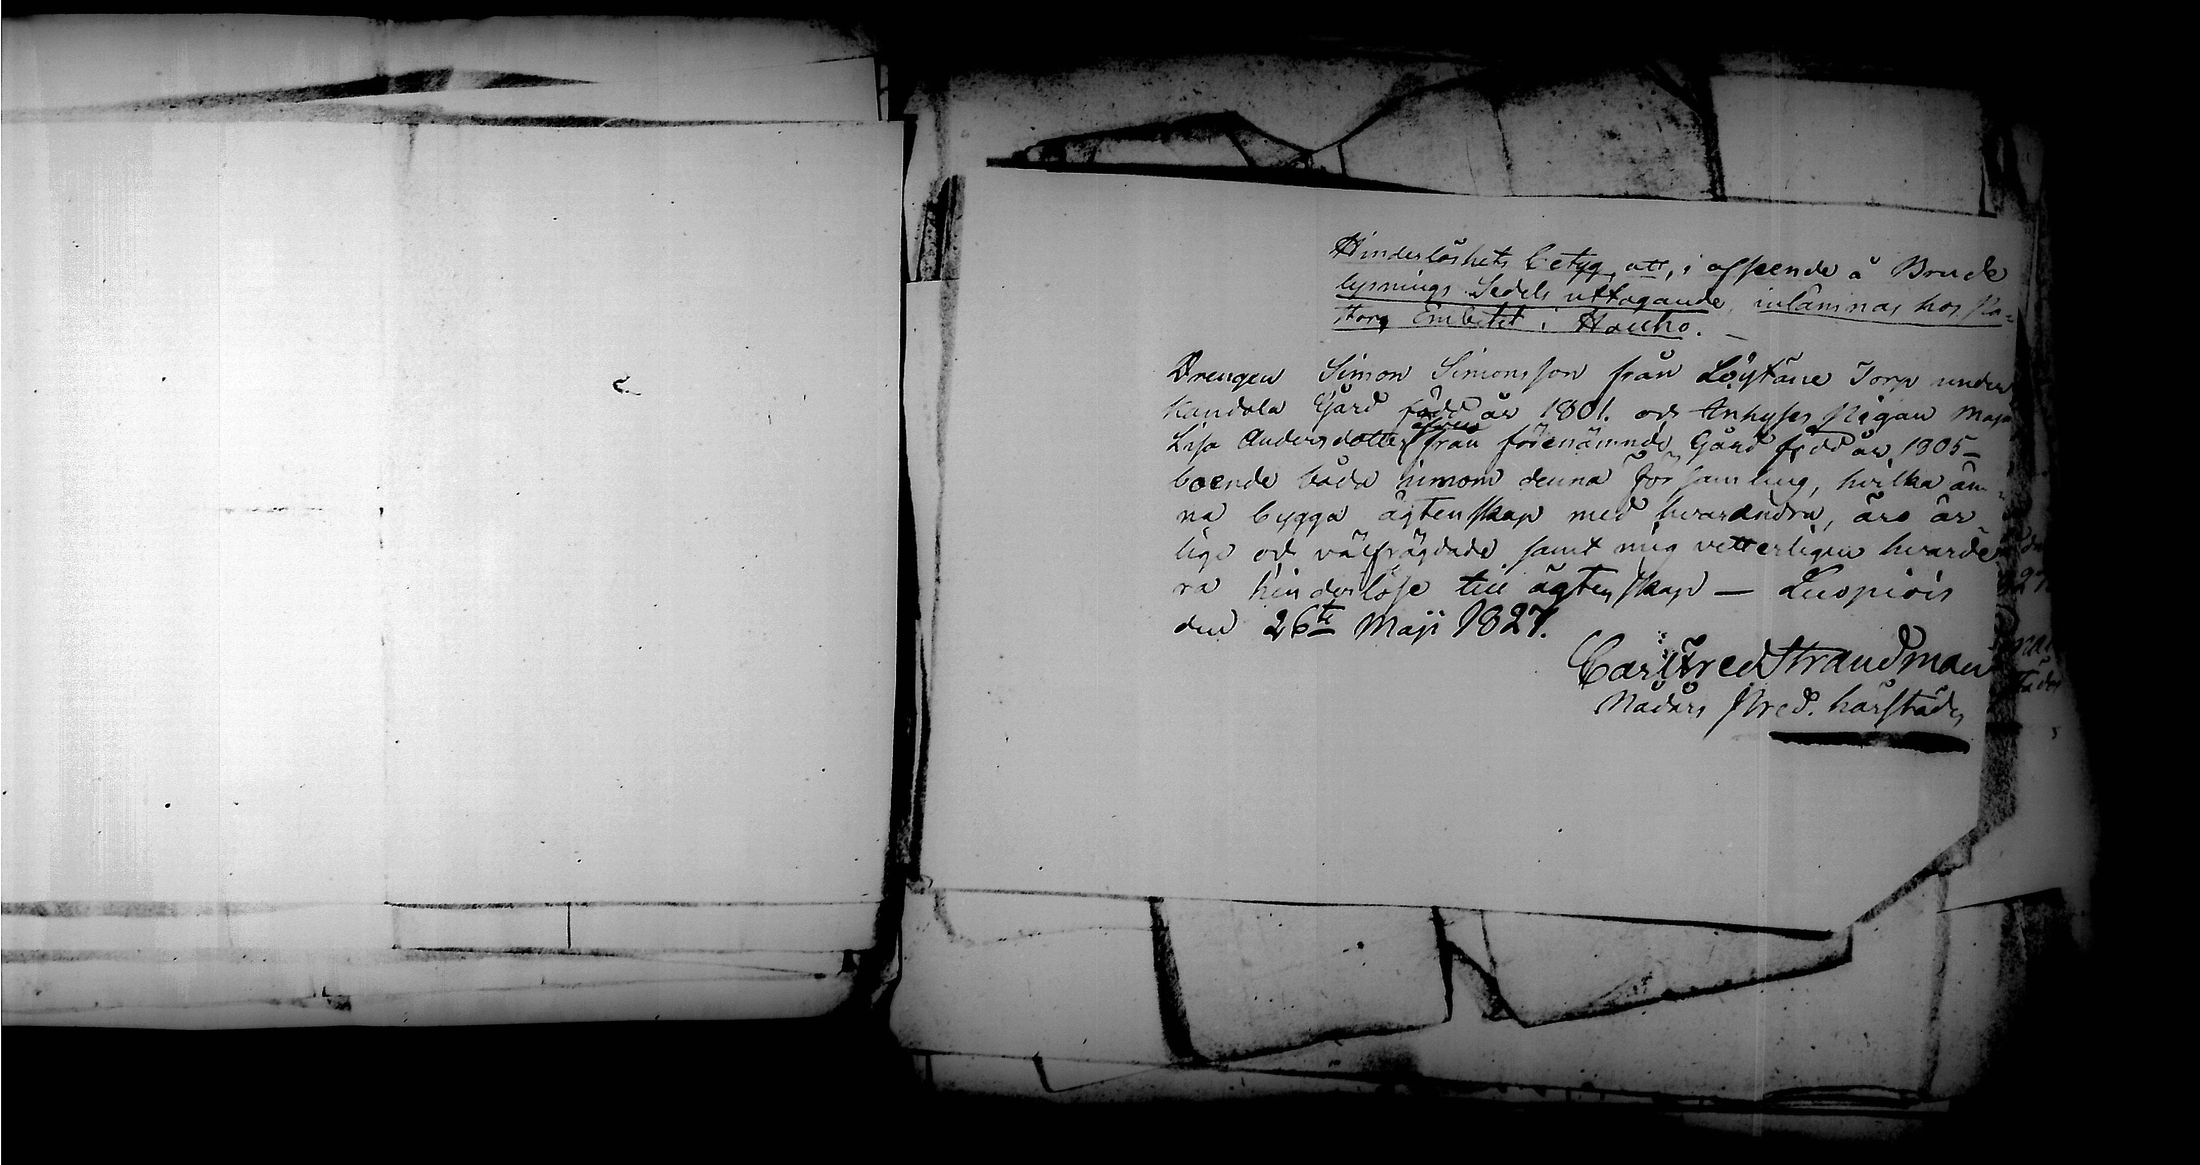 Hinderlöshets betyg, att, i afseende å Brude
lysnings Sedels uttagande, inlämnas hos Pa-
stors Embetet i Hauho. —
Drengen Simon Simonsson från Löytäne Torp under
Kandola Gård född år 1801. och Inhyses Pigan Maja
Lisa Andersdotter från förenämnde Gård född år 1805 —
boende båda innom denna Församling, hvilka äm-
na bygga ägtenskap med hvarandra, äro är
lige och välfrägdade samt mig vetterligen hvarde
ra hinderlöse till ägtenskap — Luopiois
den 26te Maji 1827.
Carl Fred Strandman
Nådårs Pred. härstädes